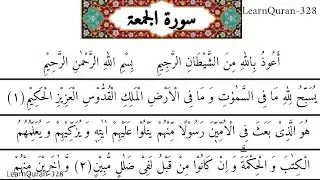 LearnQuran-328
سورة الجمعة
أَعُوذُ بِاللّٰهِ مِنَ الشَّيْطَانِ الرَّجِيْمِ بِسْمِ اللّٰهِ الرَّحْمٰنِ الرَّحِيْمِ
يُسَبِّحُ لِلّٰهِ مَا فِى السَّمٰوٰتِ وَ مَا فِى الْاَرْضِ الْمَلِكِ الْقُدُّوْسِ الْعَزِيْزِ الْحَكِيْمِ (١)
هُوَ الَّذِىْ بَعَثَ فِى الْاُمِّيّٖنَ رَسُوْلًا مِّنْهُمْ يَتْلُوْا عَلَيْهِمْ اٰيٰتِهٖ وَ يُزَكِّيْهِمْ وَ يُعَلِّمُهُمُ
الْكِتٰبَ وَ الْحِكْمَةَ وَ اِنْ كَانُوْا مِنْ قَبْلُ لَفِىْ ضَلٰلٍ مُّبِيْنٍ (٢) وَّ اٰخَرِيْنَ مِنْهُمْ
LearnQuran-328